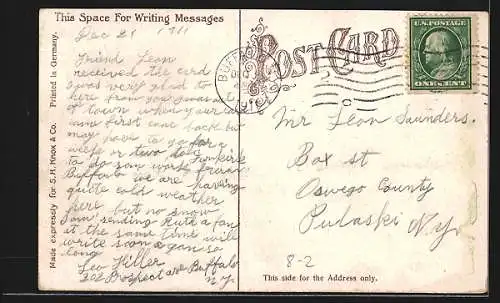 This Space For Writing Messages
Dec 21 1911
Friend Leon
received the card
was very glad to
here from you
town when your card
came first came back but
may have to go for a
week or two to Dunkirk
to do som work
Buffalo we are having
quite cold weather
here but no snow
I am sending Ruth a fan
at the same time will
write soon again so
long
Leo Hiller
302 Prospect ave Buffalo
N.Y.
Made expressly for S.H. Knox & Co. Printed in Germany.
POST CARD
BUFFALO
U.S. POSTAGE
ONE CENT
Mr Leon Saunders.
Box st
Oswego County
Pulaski N.Y.
8-2
This side for the Address only.